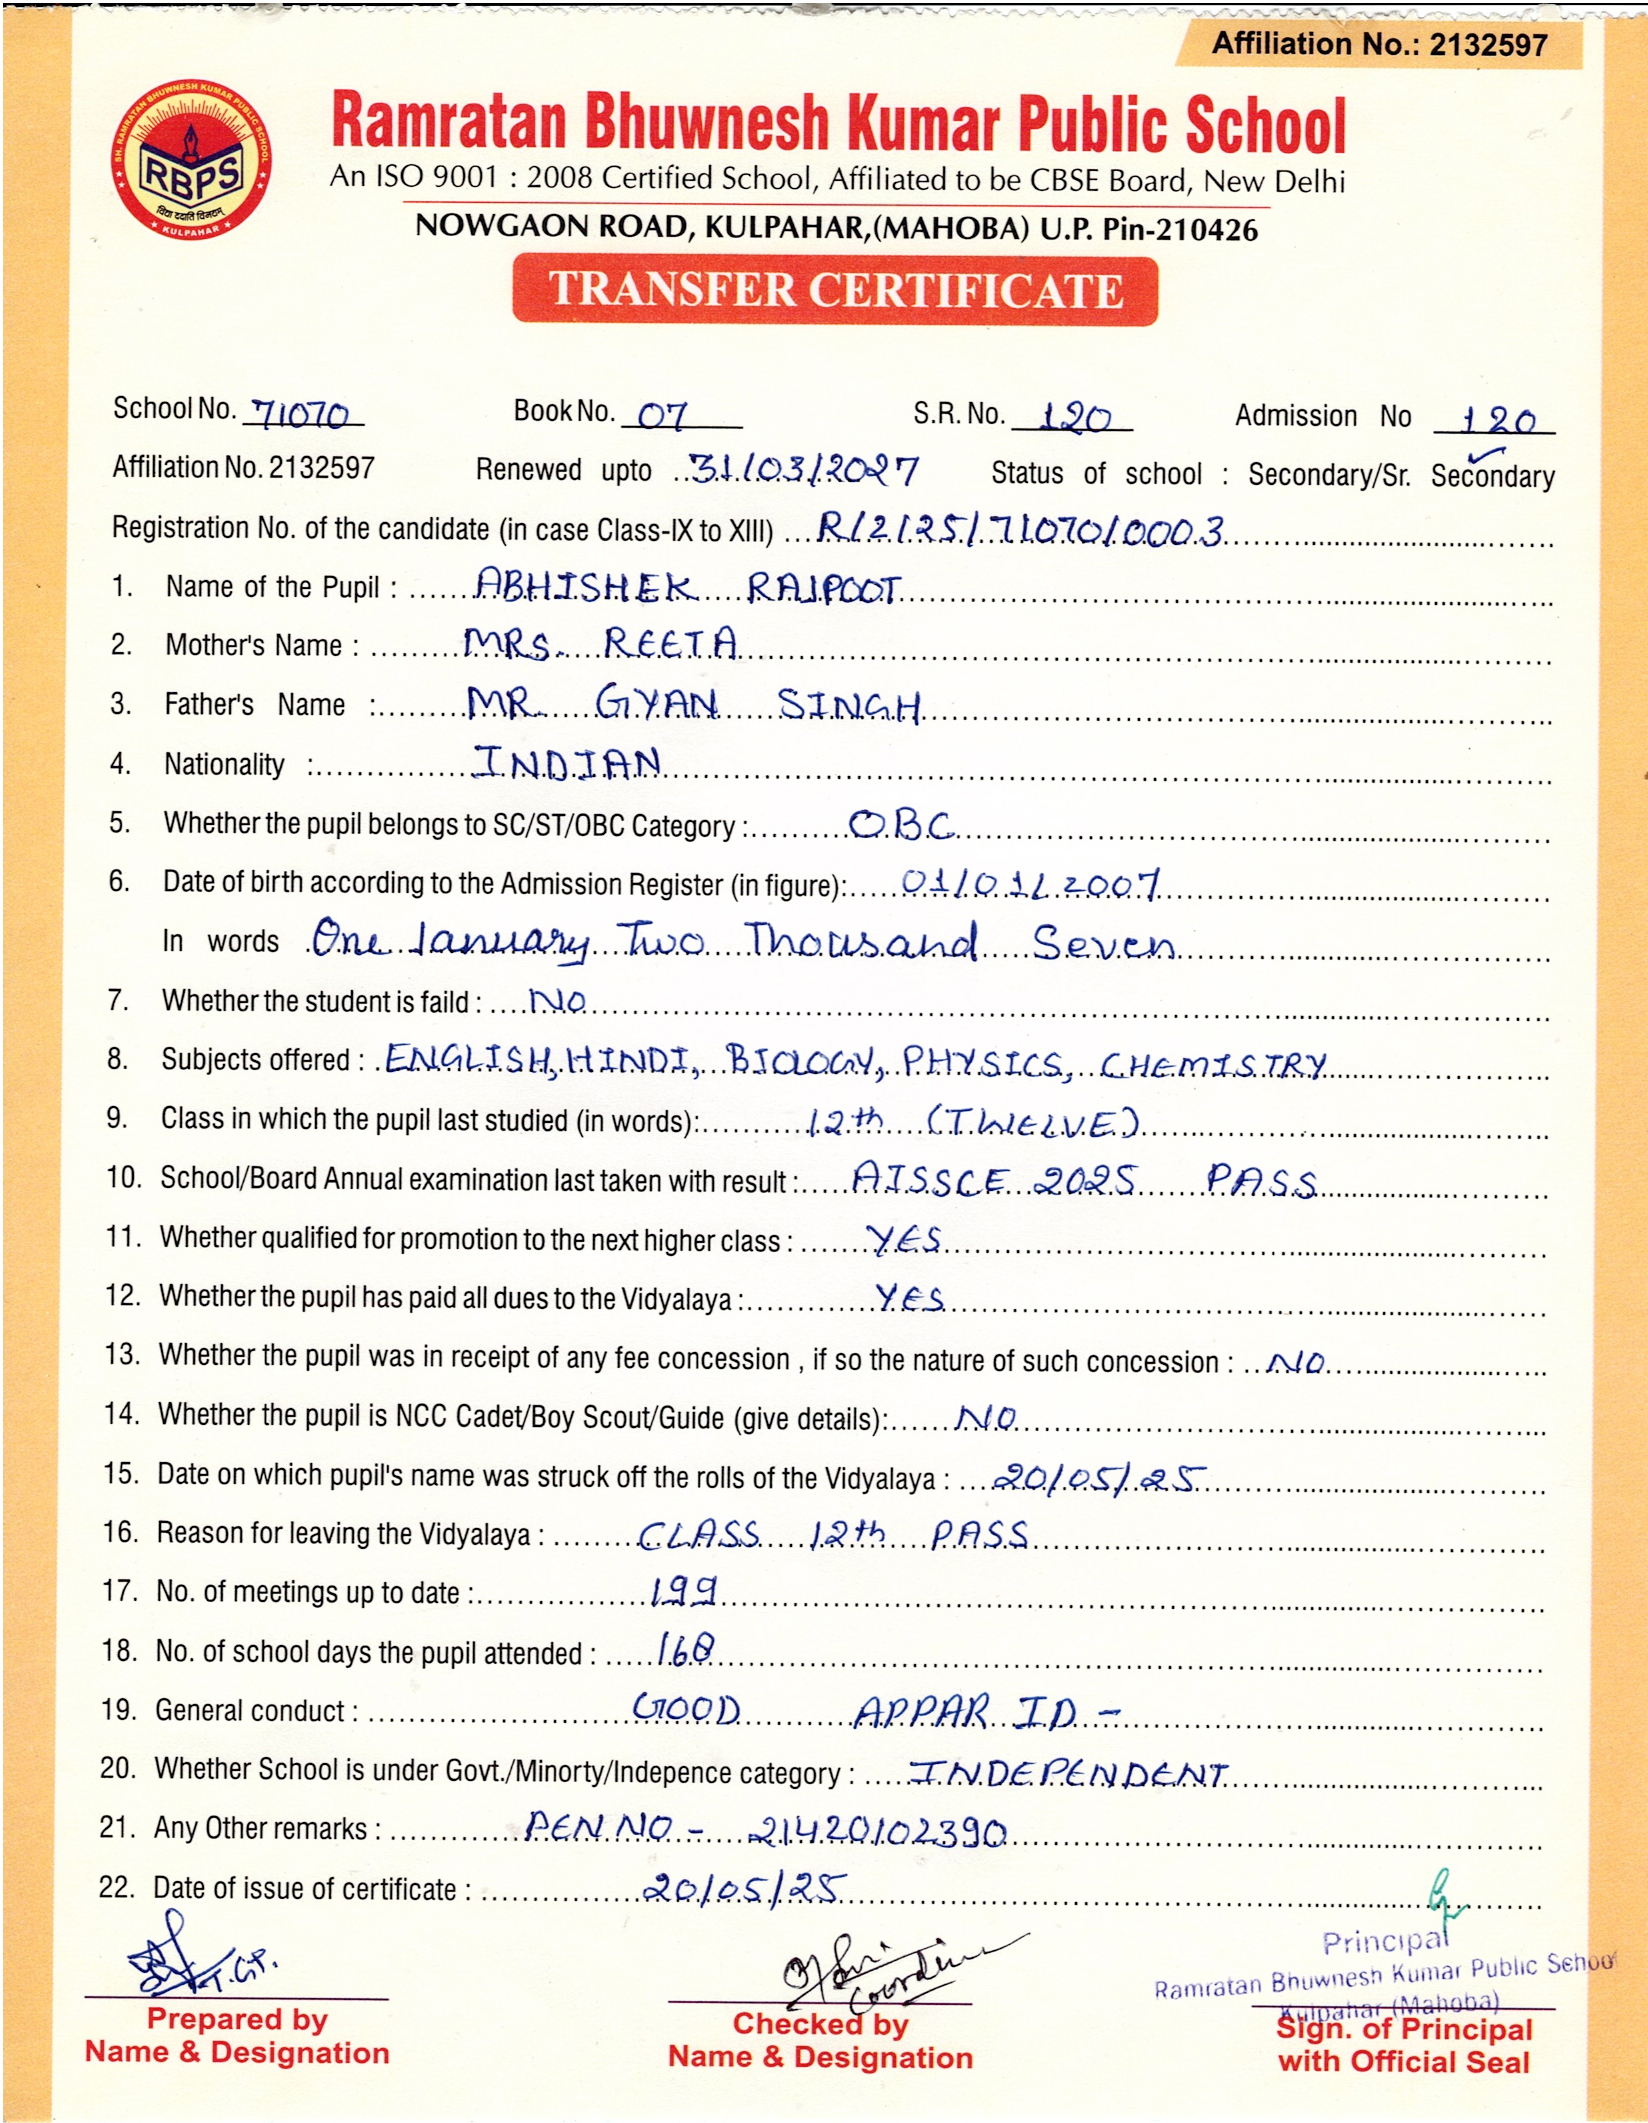 Affiliation No.: 2132597
SH. RAMRATAN BHUWNESH KUMAR PUBLIC SCHOOL
RBPS
विद्या ददाति विनयम्
KULPAHAR
Ramratan Bhuwnesh Kumar Public School
An ISO 9001 : 2008 Certified School, Affiliated to be CBSE Board, New Delhi
NOWGAON ROAD, KULPAHAR,(MAHOBA) U.P. Pin-210426
TRANSFER CERTIFICATE
School No. 71070 Book No. 07 S.R. No. 120 Admission No 120
Affiliation No. 2132597 Renewed upto 31/03/2027 Status of school : Secondary/Sr. Secondary
Registration No. of the candidate (in case Class-IX to XIII) R/2/25/71070/0003
1. Name of the Pupil : ABHISHEK RAJPOOT
2. Mother's Name : MRS. REETA
3. Father's Name : MR. GYAN SINGH
4. Nationality : INDIAN
5. Whether the pupil belongs to SC/ST/OBC Category : OBC
6. Date of birth according to the Admission Register (in figure): 01/01/2007
In words One January Two Thousand Seven
7. Whether the student is faild : NO
8. Subjects offered : ENGLISH, HINDI, BIOLOGY, PHYSICS, CHEMISTRY
9. Class in which the pupil last studied (in words): 12th (TWELVE)
10. School/Board Annual examination last taken with result : AISSCE 2025 PASS
11. Whether qualified for promotion to the next higher class : YES
12. Whether the pupil has paid all dues to the Vidyalaya : YES
13. Whether the pupil was in receipt of any fee concession , if so the nature of such concession : NO
14. Whether the pupil is NCC Cadet/Boy Scout/Guide (give details): NO
15. Date on which pupil's name was struck off the rolls of the Vidyalaya : 20/05/25
16. Reason for leaving the Vidyalaya : CLASS 12th PASS
17. No. of meetings up to date : 199
18. No. of school days the pupil attended : 160
19. General conduct : GOOD APPAR ID -
20. Whether School is under Govt./Minorty/Indepence category : INDEPENDENT
21. Any Other remarks : PEN NO - 21420102390
22. Date of issue of certificate : 20/05/25
T.G.P.
Principal
Ramratan Bhuwnesh Kumar Public School
Kulpahar (Mahoba)
Prepared by
Name & Designation
Checked by
Name & Designation
Sign. of Principal
with Official Seal